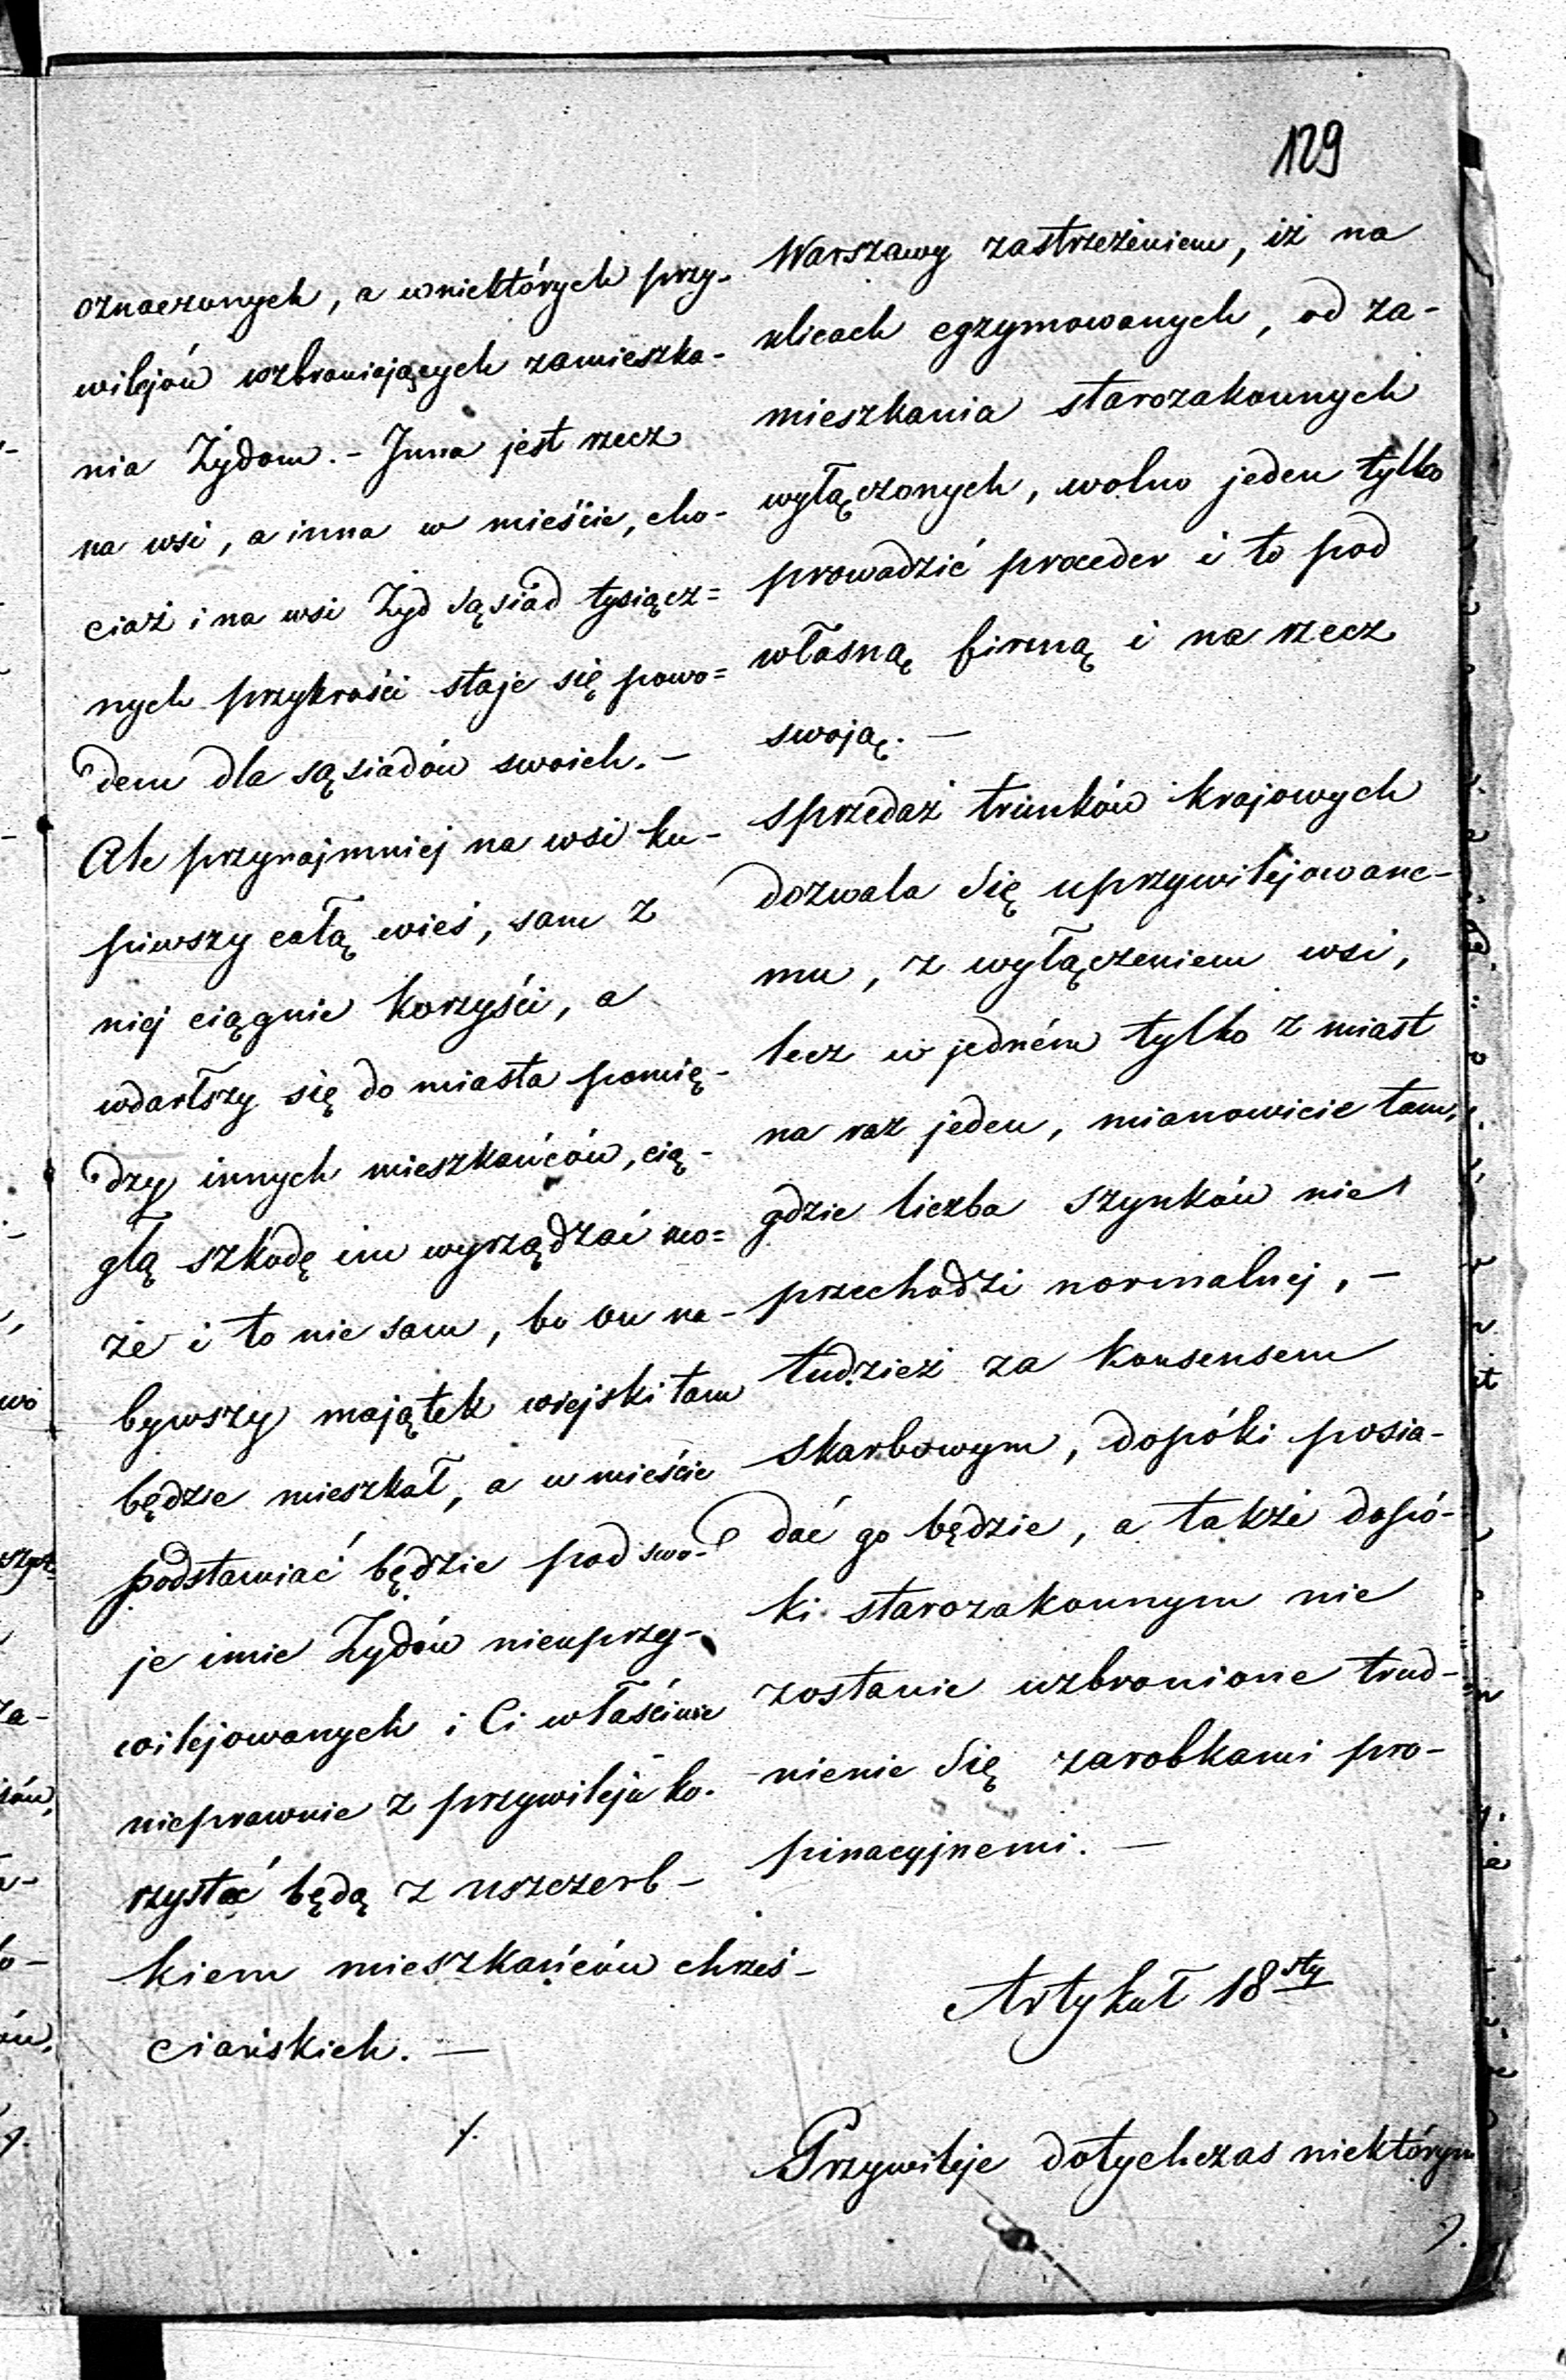 129
oznaczonych, a w niektórych przy-
wilejów wzbraniających zamieszka-
nia Żydom. - Inna jest rzecz
na wsi, a inna w mieście, cho-
ciaż i na wsi Żyd sąsiad tysiącz=
nych przykrości staje się powo=
dem dla sąsiadów swoich. -
Ale przynajmniej na wsi ku-
piwszy całą wieś, sam z
niej ciągnie korzyści, a
wdarłszy się do miasta pomię-
dzy innych mieszkańców, cią-
głą szkodę im wyrządzać mo=
że i to nie sam, bo on na-
bywszy majątek wiejski tam
będzie mieszkał, a w mieście
podstawiać będzie pod swo-
je imie Żydów nieuprzy-
wilejowanych i Ci właściwie
nieprawnie z przywileju ko-
rzystać będą z uszczerb-
kiem mieszkańców chrześ-
ciańskich. -
/.
Warszawy zastrzeżeniem, iż na
ulicach egzymowanych, od za-
mieszkania starozakonnych
wyłączonych, wolno jeden tylko
prowadzić proceder i to pod
własną firmą i na rzecz
swoją. -
sprzedaż trunków krajowych
dozwala się uprzywilejowane-
mu, z wyłączeniem wsi,
lecz w jedném tylko z miast
na raz jeden, mianowicie tam,
gdzie liczba szynków nie
przechodzi normalnej, -
tudzież za konsensem
skarbowym, dopóki posia-
dać go będzie, a także dopó-
ki starozakonnym nie
zostanie wzbronione trud-
nienie się zarobkami pro-
pinacyjnemi. -
Artykuł 18sty
Przywileje dotychczas niektórym